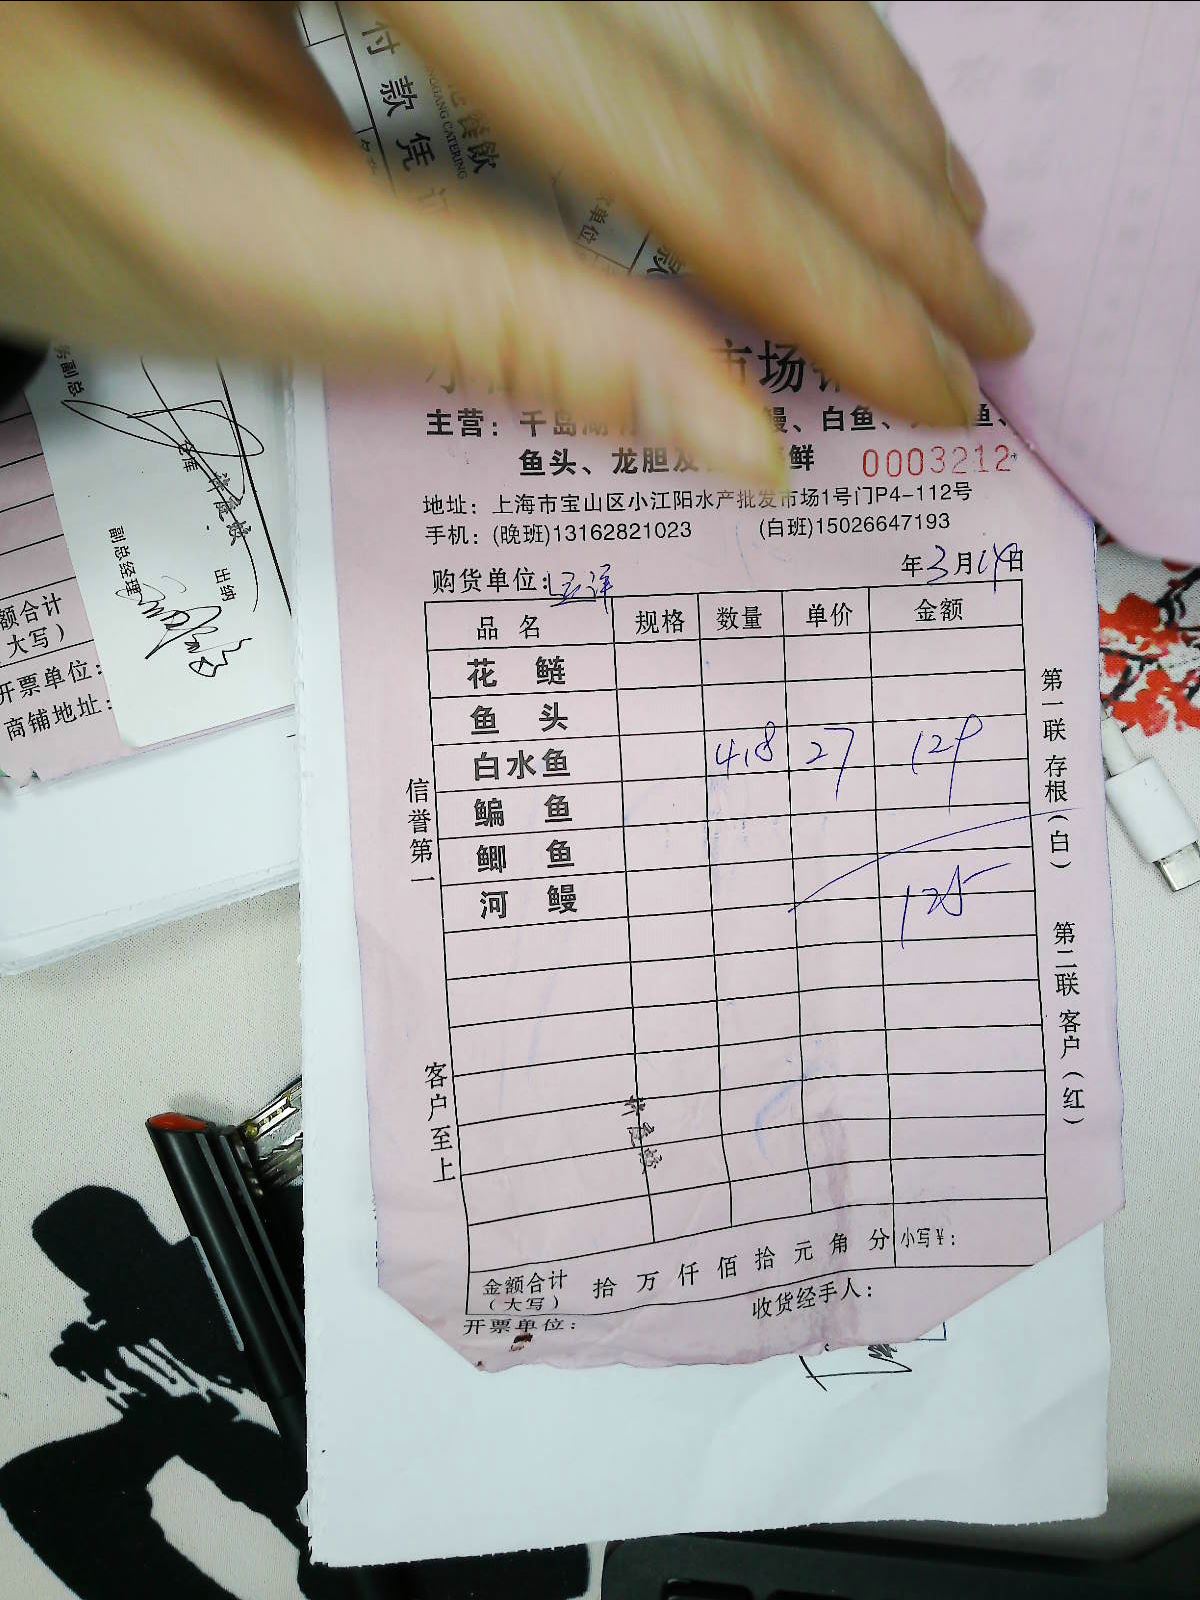 付款凭
GANG CATERING
餐飲
单位
款
市场
主营：千岛湖 鳗、白鱼、 鱼、
鱼头、龙胆及 鲜 0003212
地址：上海市宝山区小江阳水产批发市场1号门P4-112号
手机：(晚班)13162821023 (白班)15026647193
购货单位： 年3月14日
品名 规格 数量 单价 金额
花鲢
鱼头
白水鱼 4.8 27 129
鳊鱼
鲫鱼
河鳗
125
金额合计（大写） 拾 万 仟 佰 拾 元 角 分 小写¥：
开票单位： 收货经手人：
信誉第一
客户至上
第一联 存根（白）
第二联 客户（红）
副总
副总经理
出纳
额合计
大写）
开票单位：
商铺地址：